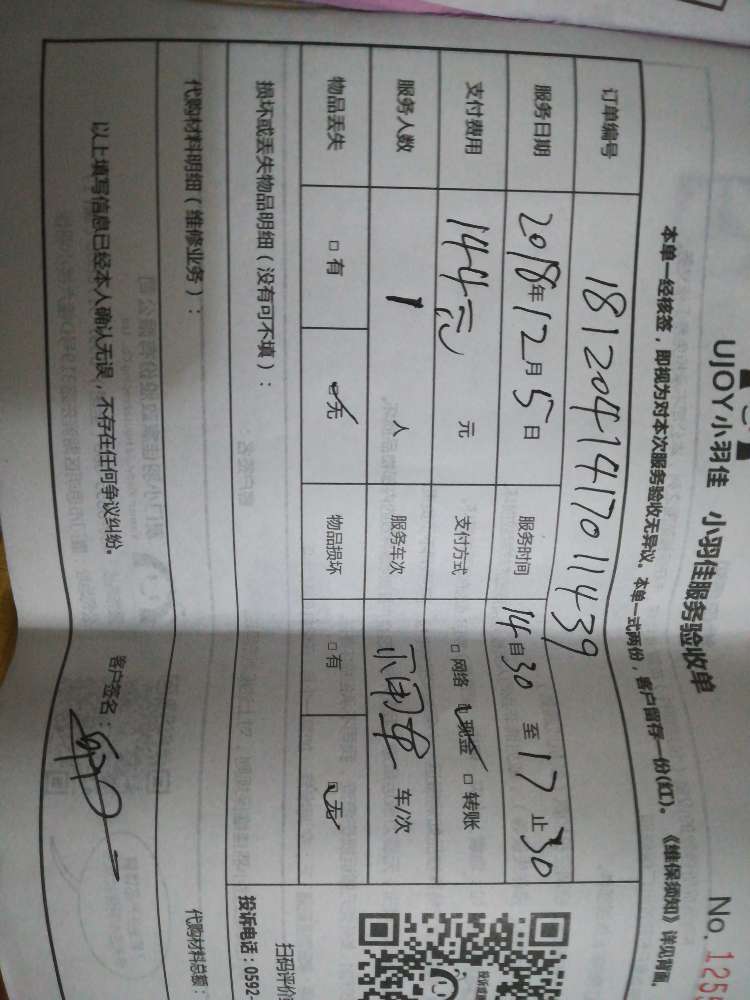 UJOY小羽佳 小羽佳服务验收单
No. 125
本单一经核签，即视为对本次服务验收无异议。本单一式两份，客户留存一份(红)。《维保须知》详见背面。
订单编号 181204141701439
服务日期 2018年12月5日 服务时间 14自30至17止30
支付费用 144元 元 支付方式 □网络 ☑现金 □转账
服务人数 1 人 服务车次 不用车 车/次
物品丢失 □有 ☑无 物品损坏 □有 ☑无
损坏或丢失物品明细（没有可不填）：
代购材料明细（维修业务）：
代购材料总额：
以上填写信息已经本人确认无误，不存在任何争议纠纷。
客户签名：
扫码评价
投诉电话：0592-